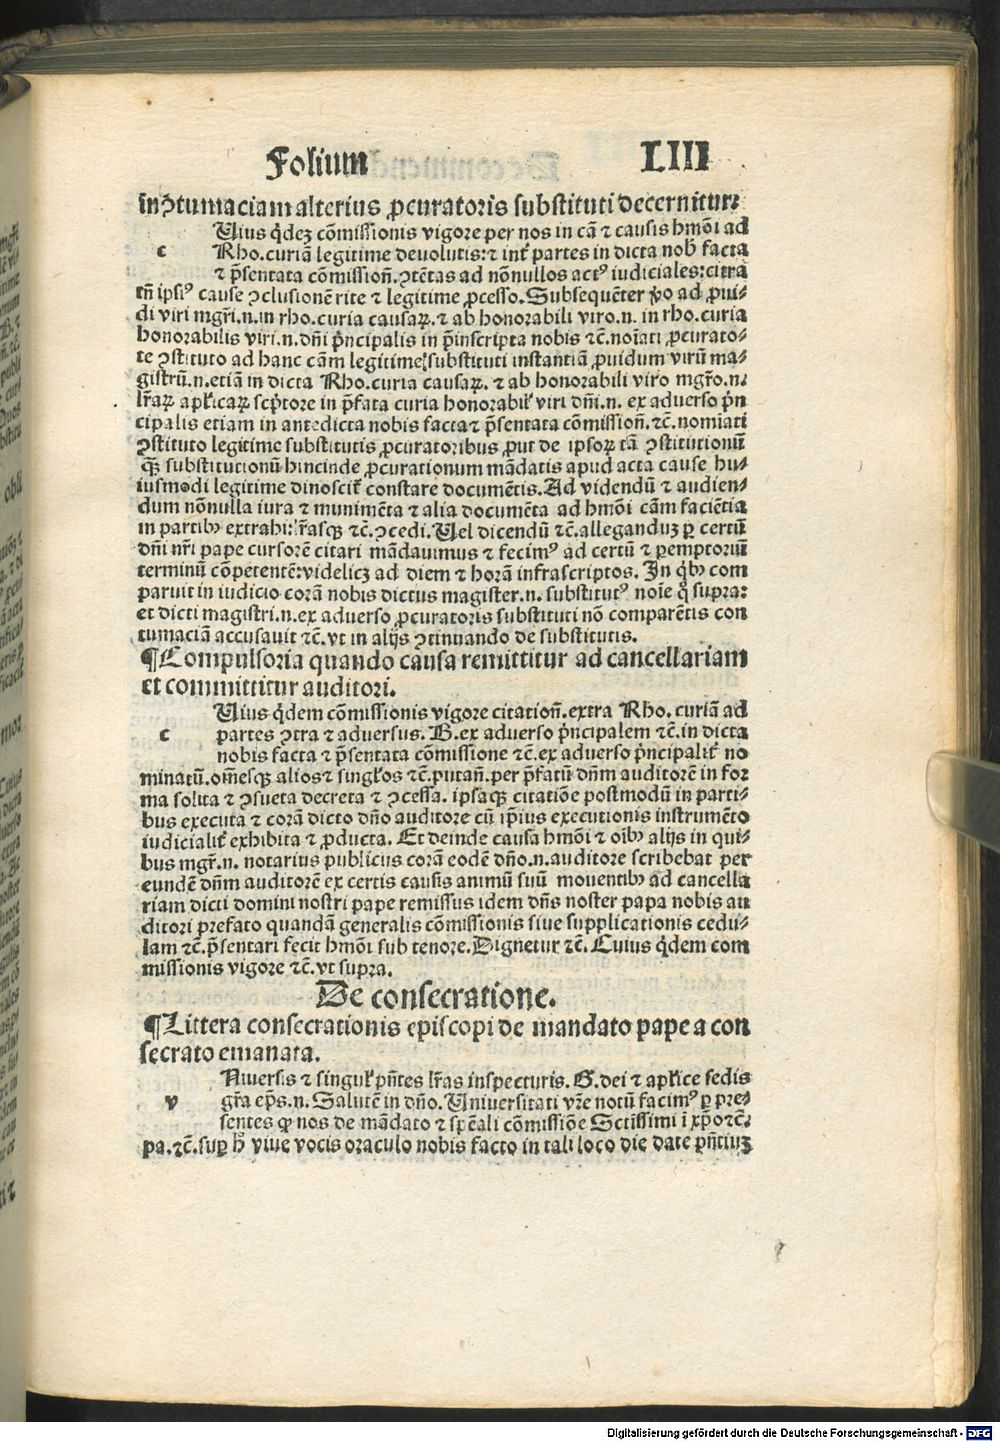 Folium LIII
in ꝯtumaciam alterius ꝓcuratoris substituti decernitur:
Uius q̇dez cōmissionis vigore per nos in cā ⁊ causis hmōi ad
c Rho.curiā legitime deuolutis:⁊ int̛ partes in dicta nob̛ facta
⁊ p̄sentata cōmissioñ.ꝯtētas ad nōnullos actꝰ iudiciales:citra
tñ ipsiꝰ cause ꝯclusionē rite ⁊ legitime ꝓcesso.Subsequēter v̓o ad ꝓui⸗
di viri mgr̄i.n.in rho.curia causaꝝ.⁊ ab honorabili viro.n. in rho.curia
honorabilis viri.n.dñi p̓ncipalis in p̄inscripta nobis ⁊c̄.noīati ꝓcurato⸗
te ꝯstituto ad hanc cām legitime substituti instantiā ꝓuidum virū ma⸗
gistrū.n.etiā in dicta Rho.curia causaꝝ. ⁊ ab honorabili viro mgr̄o.n.
lr̄aꝝ aplicaꝝ scp̓tore in p̄fata curia honorabil̛ viri dñi.n. ex aduerso p̓n
cipalis etiam in antedicta nobis facta ⁊ p̄sentata cōmissioñ.⁊c̄.nomīati
ꝯstituto legitime substitutis ꝓcuratoribus ꝓut de ipsoꝝ tā ꝯstitutionū
qꝫ substitutionū hincinde ꝓcurationum mādatis apud acta cause hu⸗
iusmodi legitime dinoscit̛ constare documētis.Ad videndū ⁊ audien⸗
dum nōnulla iura ⁊ munimēta ⁊ alia documēta ad hmōi cām faciētia
in partibꝰ extrahi:lr̄asqꝫ ⁊c̄.ꝯcedi.Uel dicendū ⁊c̄.allegandūꝫ ꝑ certū
dñi nr̄i pape cursorē citari mādauimus ⁊ fecimꝰ ad certū ⁊ ꝑemptoriū
terminū cōpetentē:videlicꝫ ad diem ⁊ horā infrascriptos. In q̇bꝰ com
paruit in iudicio corā nobis dictus magister.n. substitutꝰ noīe q̊ supra:
et dicti magistri.n.ex aduerso ꝓcuratoris substituti nō comparētis con
tumaciā accusauit ⁊c̄.vt in alijs ꝯtinuando de substitutis.
¶Compulsoria quando causa remittitur ad cancellariam
et committitur auditori.
Uius q̇dem cōmissionis vigore citatioñ.extra Rho. curiā ad
c partes ꝯtra ⁊ aduersus. B.ex aduerso p̓ncipalem ⁊c̄.in dicta
nobis facta ⁊ p̄sentata cōmissione ⁊c̄.ex aduerso p̓ncipalit̛ no
minatū.om̄esqꝫ alios⁊ singlos ⁊c̄.putañ.per p̄fatū dñm auditorē in for
ma solita ⁊ ꝯsueta decreta ⁊ ꝯcessa. ipsaqꝫ citatiōe postmodū in parti⸗
bus executa ⁊ corā dicto dño auditore cū ip̄ius executionis instrumēto
iudicialit̛ exhibita ⁊ ꝓducta. Et deinde causa hmōi ⁊ oībꝰ alijs in qui⸗
bus mgr̄.n. notarius publicus corā eodē dño.n.auditore scribebat per
eundē dñm auditorē ex certis causis animū suū mouentibꝰ ad cancella
riam dicti domini nostri pape remissus idem dñs noster papa nobis au
ditori prefato quandā generalis cōmissionis siue supplicationis cedu⸗
lam ⁊c̄.p̄sentari fecit hmōi sub tenore.Dignetur ⁊c̄. Cuius q̇dem com
missionis vigore ⁊c̄.vt supra.
De consecratione.
¶Littera consecrationis episcopi de mandato pape a con
secrato emanata.
Niuersis ⁊ singul̛ pñtes lr̄as inspecturis. G.dei ⁊ aplice sedis
v gr̄a ep̄s.n.Salutē in dño.Uniuersitati vr̄e notū facimꝰ ꝑ pre⸗
sentes ꝙ nos de mādato ⁊ spēali cōmissiōe Sctissimi ī xp̄o⁊c̄.
pa.⁊c̄.suꝑ h̓ viue vocis oraculo nobis facto in tali loco die date pñtiuꝫ
Digitalisierung gefördert durch die Deutsche Forschungsgemeinschaft - DFG